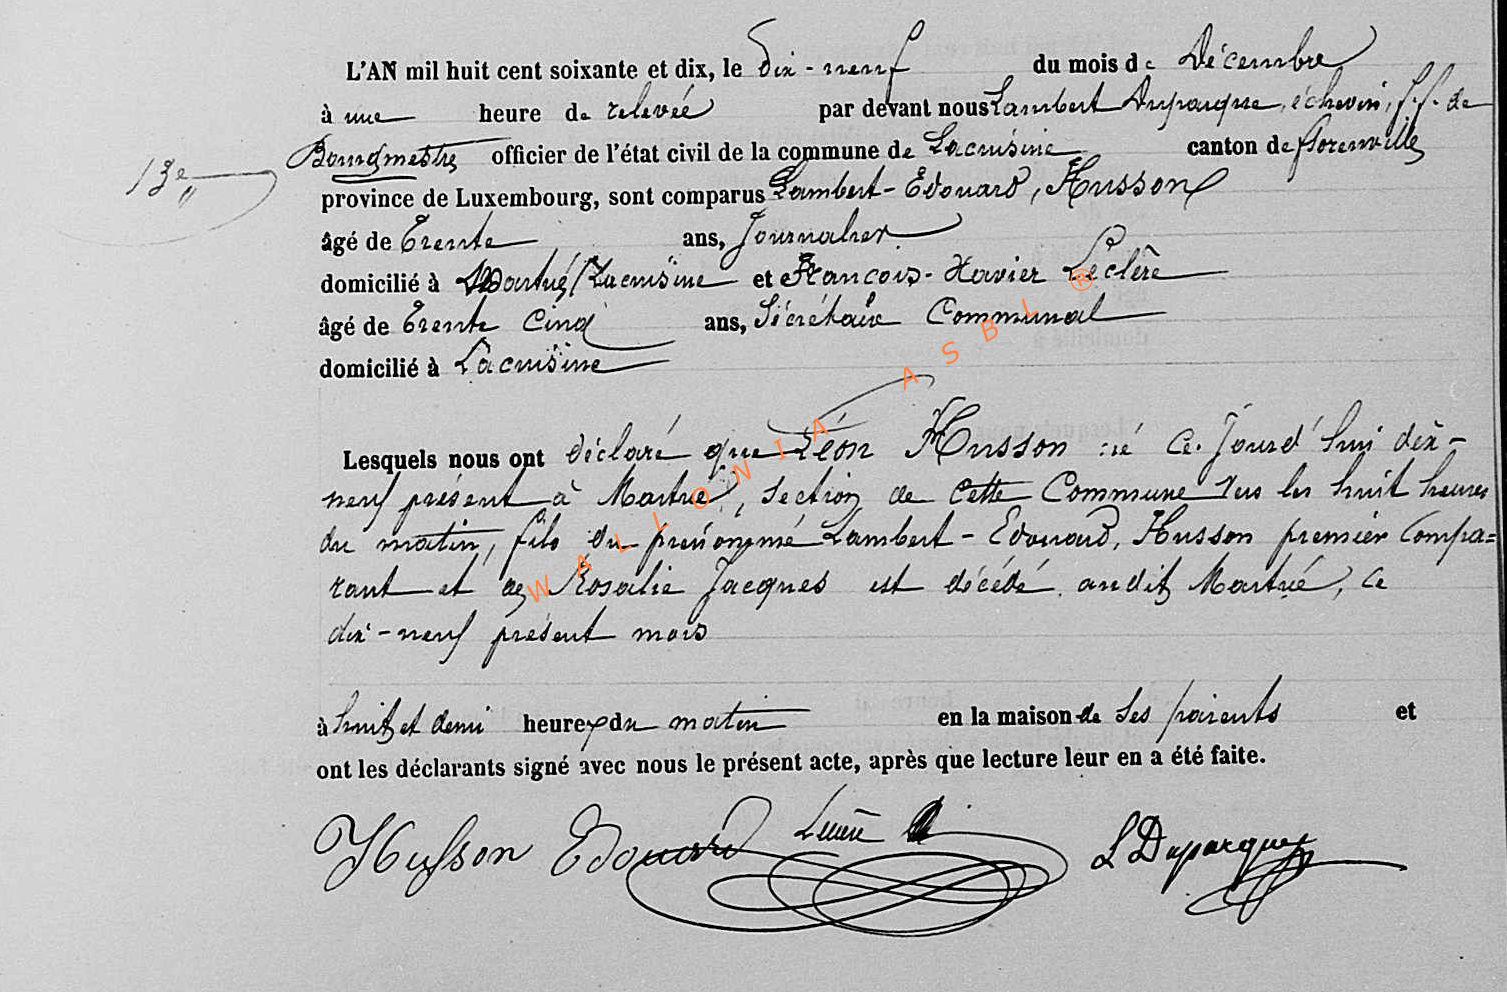 L'AN mil huit cent soixante et dix, le dix-neuf du mois de Décembre
à une heure de relevée par devant nous Lambert Duparque, échevin, f.f. de
13e
Bourgmestre officier de l'état civil de la commune de Lacuisine canton de florenville
province de Luxembourg, sont comparus Lambert-Edouard, Husson
âgé de Trente ans, Journalier
domicilié à Martué/Lacuisine et Francois-Xavier Leclère
âgé de Trente Cinq ans, Sécrétaire Communal
domicilié à Lacuisine
Lesquels nous ont déclaré que Léon Husson né ce Jourd'hui dix-
neuf présent à Martué, Section de cette Commune vers les huit heures
du matin, fils du prénommé Lambert-Edouard, Husson premier Compa=
rant et de Rosalie Jacques est décédé audit Martué, ce
dix-neuf présent mois
à huit et demi heures du matin en la maison de ses parents et
ont les déclarants signé avec nous le présent acte, après que lecture leur en a été faite.
Husson Edouard Leclère L Duparque
WALLONIA ASBL ®